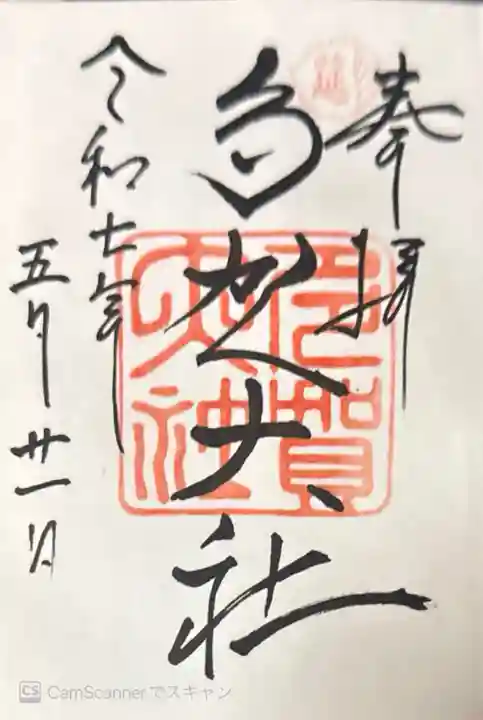 奉拝
多賀大社
令和七年
五月廿一日
多賀大社
CS CamScannerでスキャン